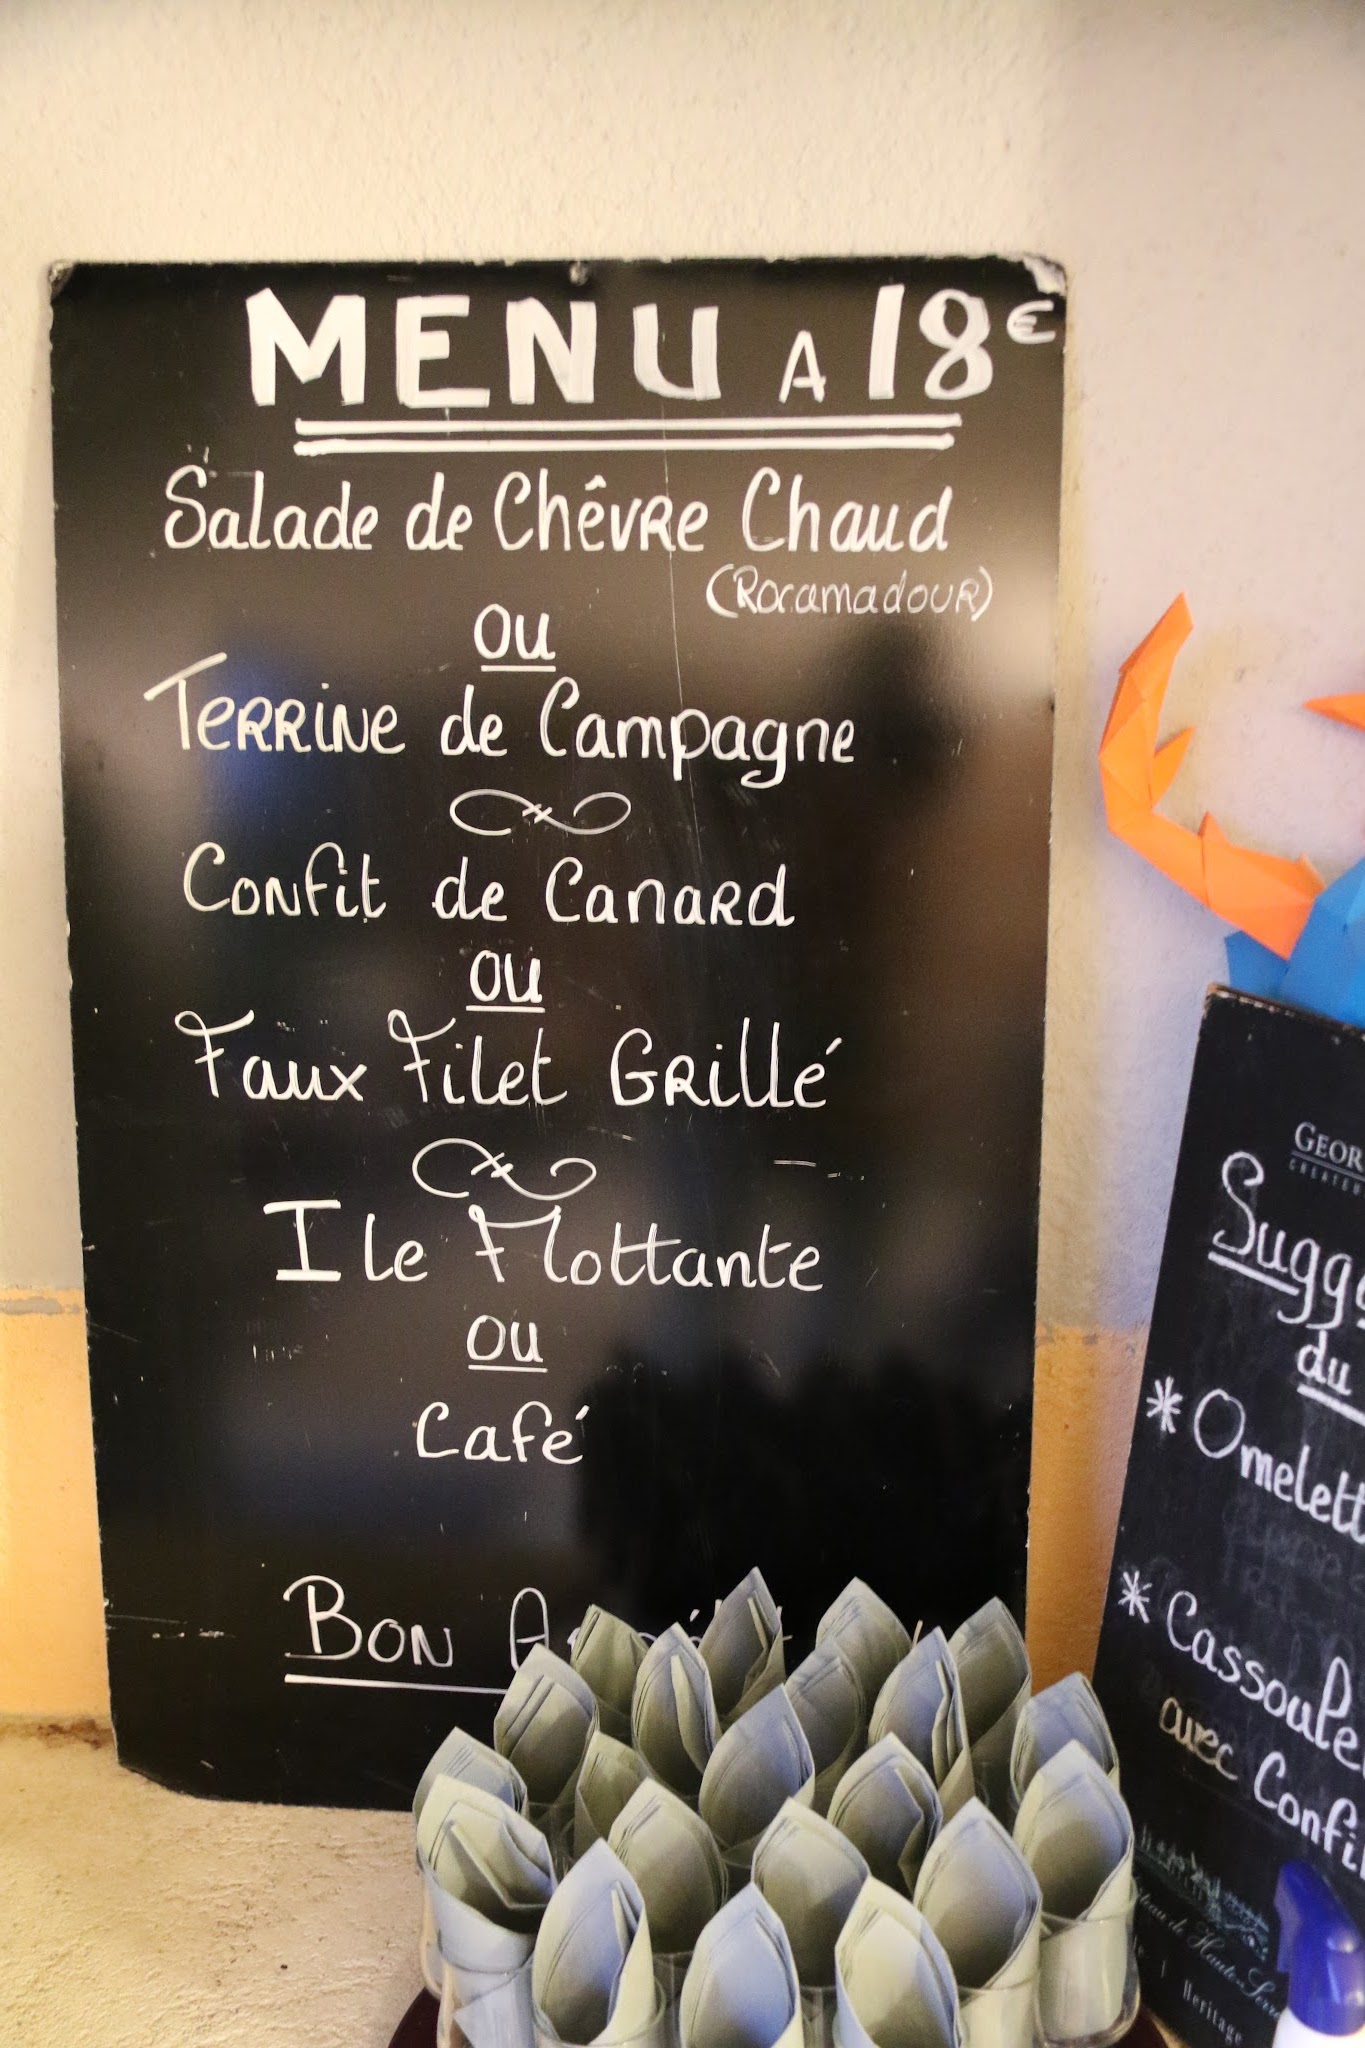 MENU A 18€
Salade de Chêvre Chaud
(Rocamadour)
ou
Terrine de Campagne
Confit de Canard
ou
Faux Filet Grillé
Ile Flottante
ou
Café
Bon
Geor
Sugge
du
* Omelett
* Cassoule
avec Confi
Heritage